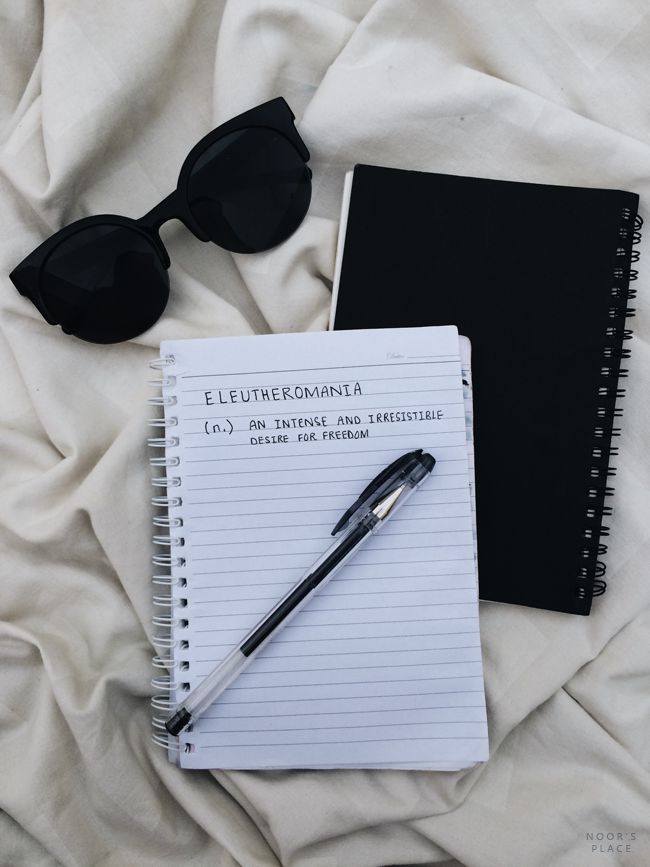 Date
ELEUTHEROMANIA
(n.) AN INTENSE AND IRRESISTIBLE
DESIRE FOR FREEDOM
NOOR'S
PLACE